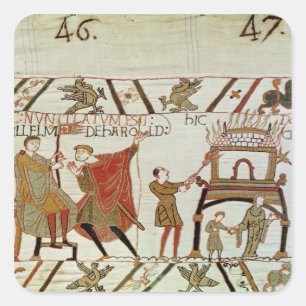 46. 47.
NVNTIATVM EST
LLELM DE HAROLD: HIC